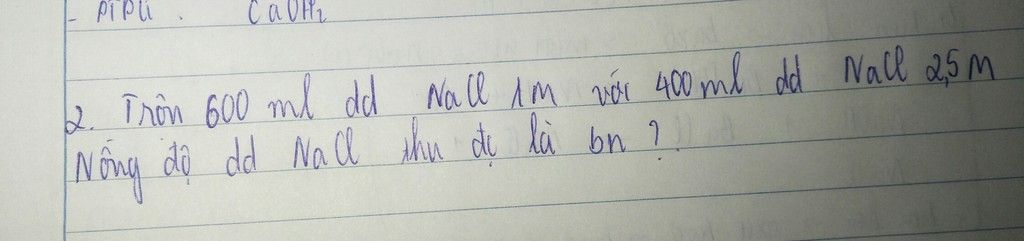 - PTPU . CaOH2
2. Trộn 600 ml dd NaCl 1M với 400 ml dd NaCl 2,5M
Nồng độ dd NaCl thu đc là bn ?